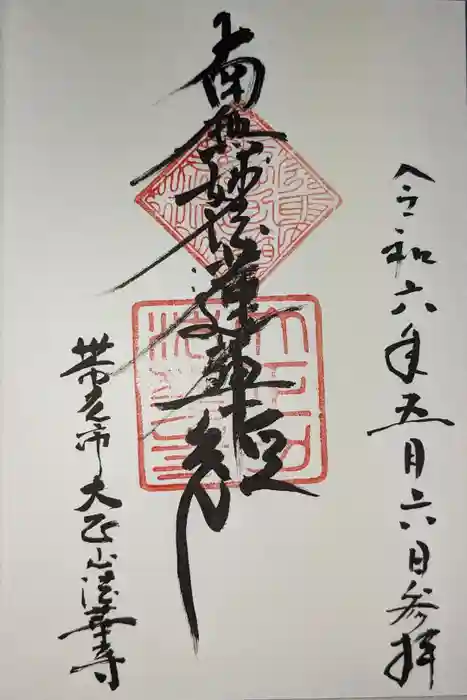 令和六年五月六日参拝
南無妙法蓮華経
帯広市大正山法華寺